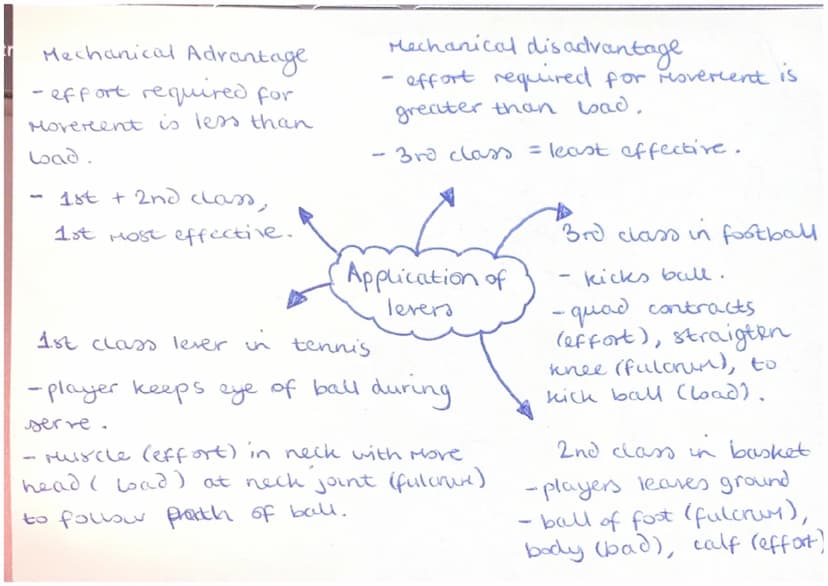 Mechanical Advantage
- effort required for
Movement is less than
load.
- 1st + 2nd class,
1st most effective.
Mechanical disadvantage
- effort required for Movement is
greater than load.
- 3rd class = least effective.
Application of
levers
3rd class in football
- kicks ball.
- quad contracts
(effort), straigten
knee (fulcrum), to
kick ball (load).
1st class lever in tennis
- player keeps eye of ball during
serve.
- Muscle (effort) in neck with move
head (load) at neck joint (fulcrum)
to follow path of ball.
2nd class in basket
- players leaves ground
- ball of foot (fulcrum),
body (load), calf (effort)